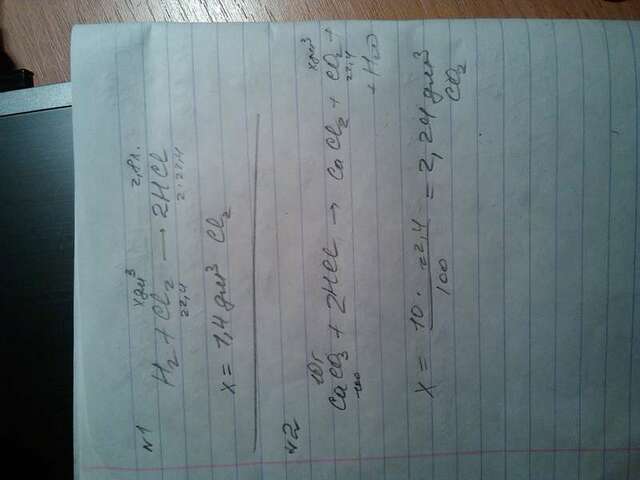 №1
x дм³ 2,8л.
H₂ + Cl₂ → 2HCl
22,4 2·22,4
x = 1,4 дм³ Cl₂
№2
10г x дм³
CaCO₃ + 2HCl → CaCl₂ + CO₂ +
100 22,4
+ H₂O
x = 10 · 22,4 / 100 = 2,24 дм³
CO₂